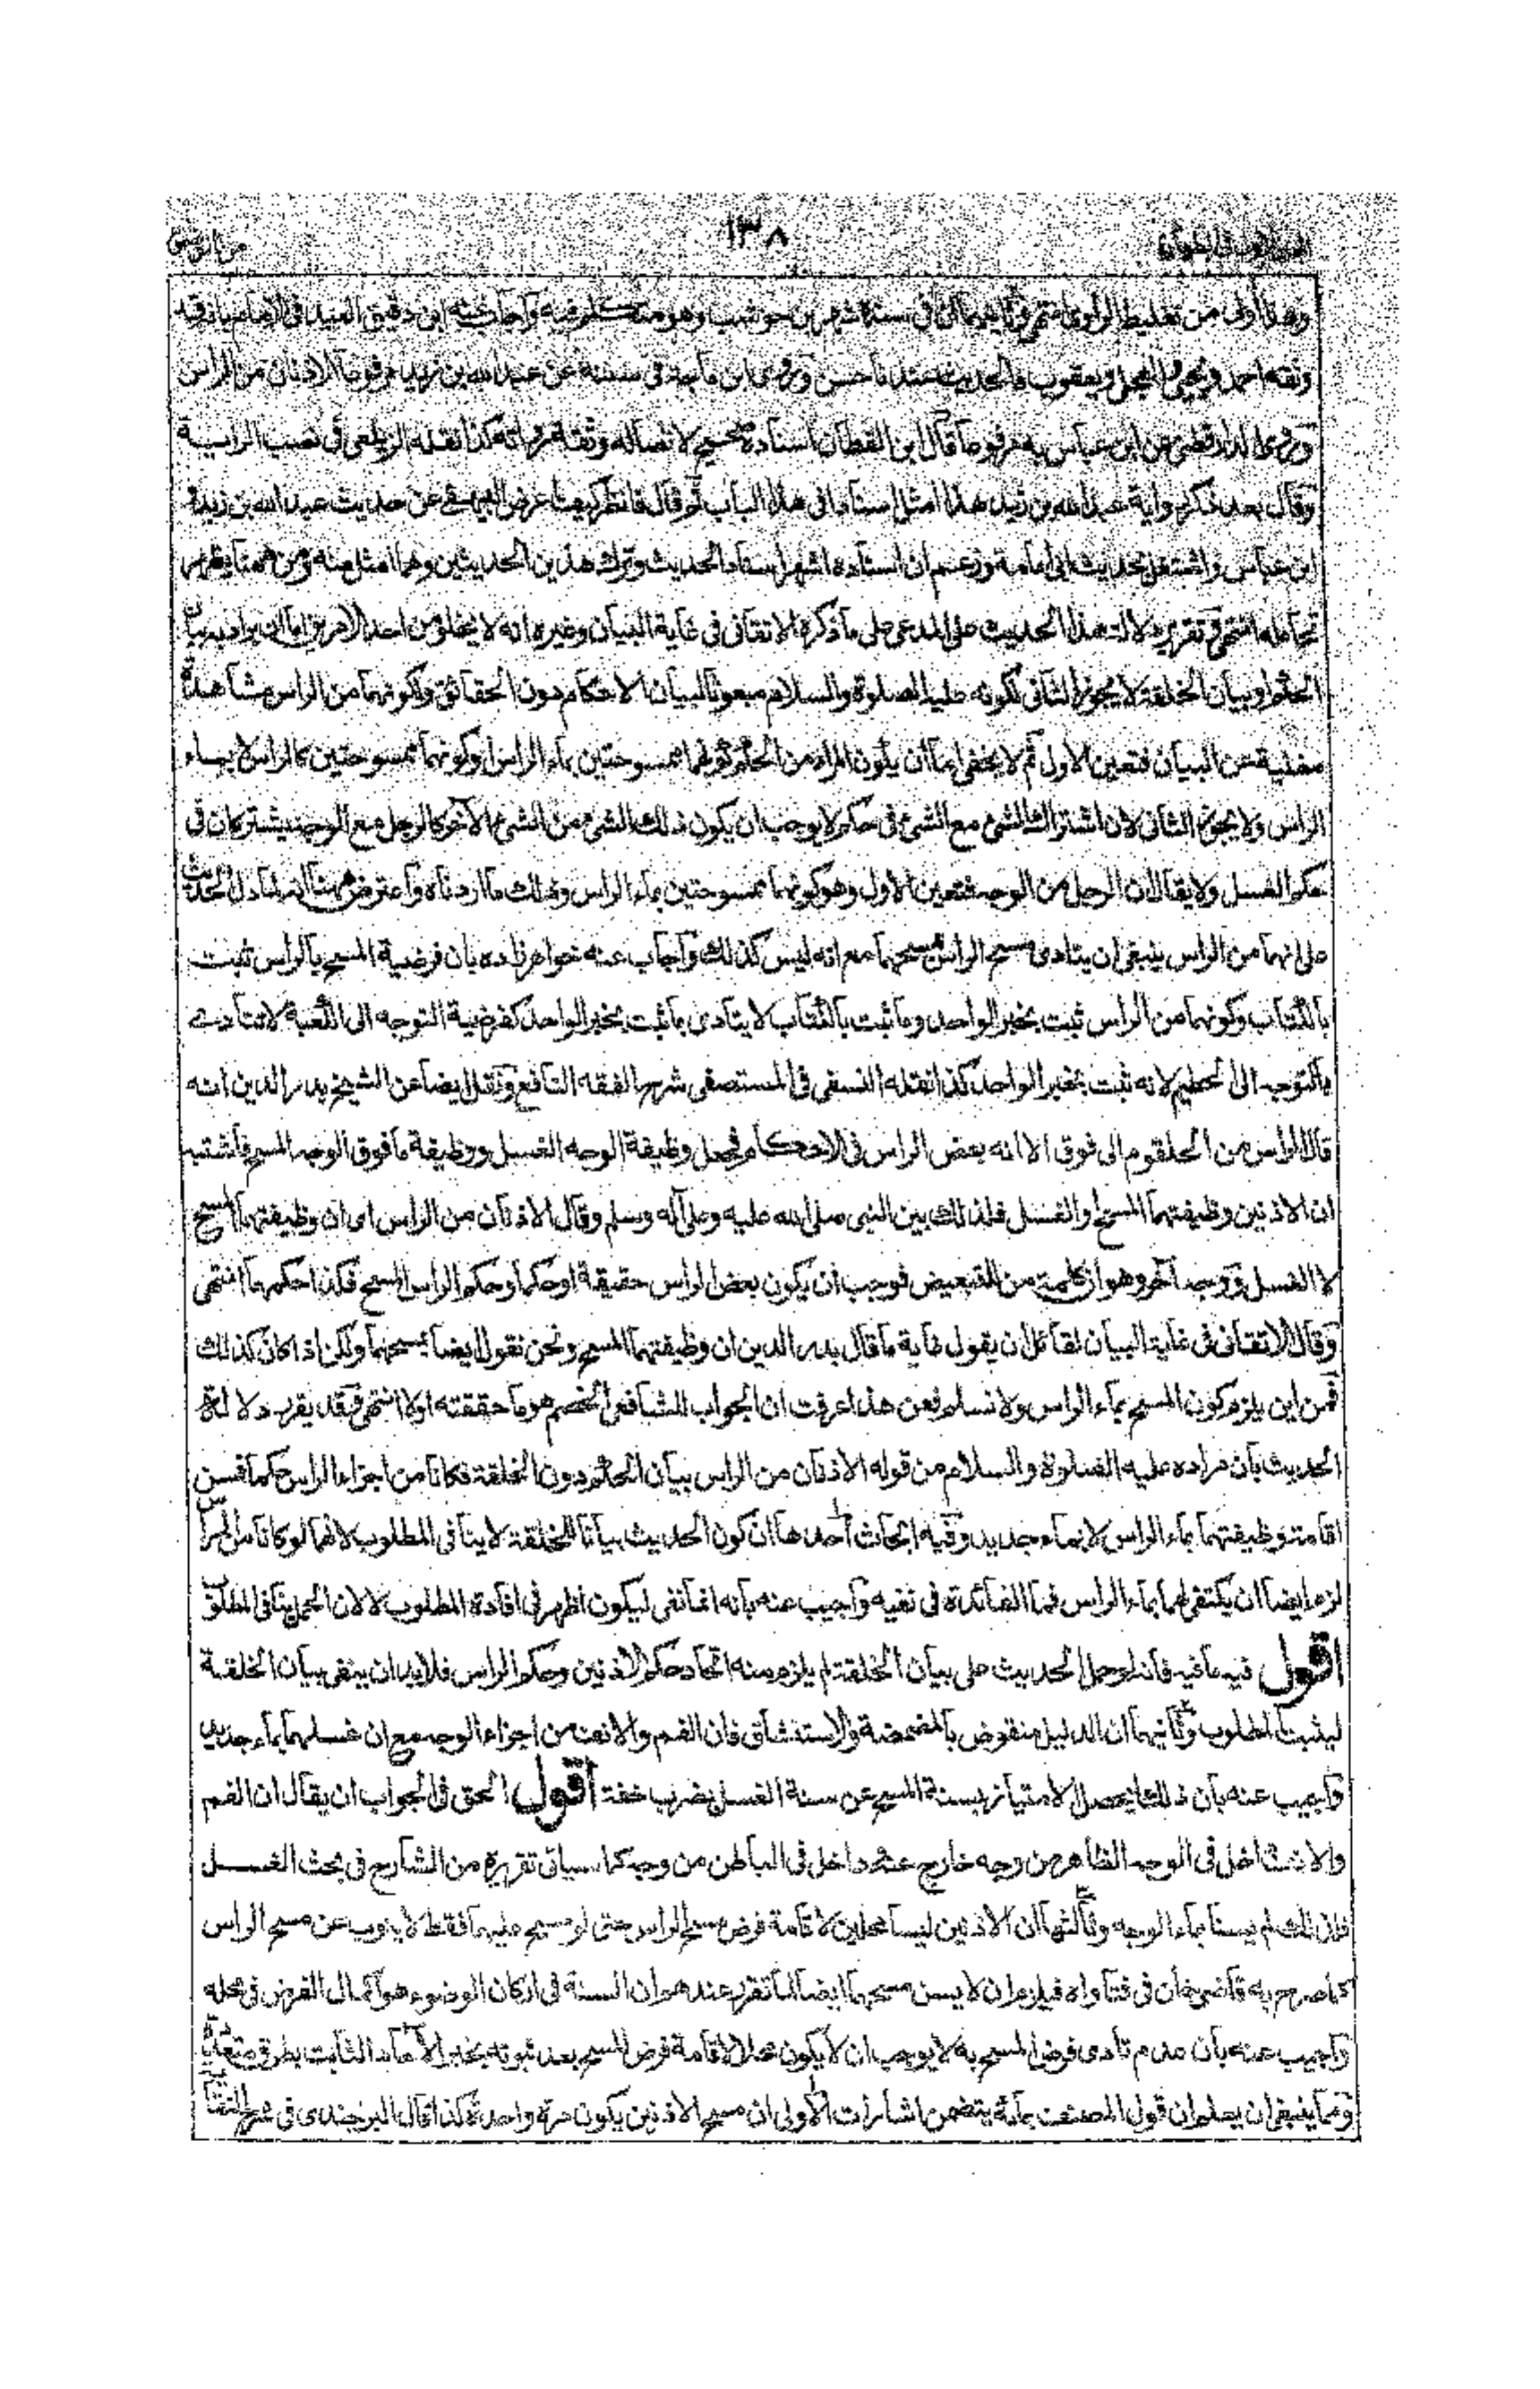 ١٣٨
وهذا أولى من تغليط الراوي انتهى وثانيهما أن في سنده شهر بن حوشب وهو متكلم فيه وأجاب عنه ابن دقيق العيد في الإمام بأنه قد
وثقه أحمد ويحيى والعجلي ويعقوب فالحديث عندنا حسن وروى ابن ماجة في سننه عن عبد الله بن زيد مرفوعا الاذنان من الراس
وروى الدارقطني عن ابن عباس به مرفوعا قال ابن القطان اسناده صحيح لاتصاله وثقة رواته كذا نقله الزيلعي في نصب الراية
وقال بعد ذكر رواية عبد الله بن زيد هذا امثل اسنادا في هذا الباب ثم قال فانظر كيف اعرض البيهقي عن حديث عبد الله بن زيد و
ابن عباس واشتغل بحديث ابي امامة وزعم ان اسناده اشهر اسناد الحديث وترك هذين الحديثين وهما امثل منه ومن ههنا يظهر
تحامله انتهى وتقرير دلالة هذا الحديث على المدعى على ما ذكره الاتقاني في غاية البيان وغيره انه لا يخلو من احد الامرين اما ان يراد به بيان
الحكم او بيان الخلقة لا يجوز الثاني لكونه عليه الصلوة والسلام مبعوثا لبيان الاحكام دون الحقائق ولكونهما من الراس مشاهدة
مغنية عن البيان فتعين الاول ثم لا يخفى اما ان يكون المراد من الحكم كونهما ممسوحتين بماء الراس او كونهما ممسوحتين كالراس لا بماء
الراس ولا يجوز الثاني لان اشتراك الشئ مع الشئ في حكم لا يوجب ان يكون ذلك الشئ من الشئ الآخر كالرجل مع الوجه يشتركان في
حكم الغسل ولا يقال ان الرجل من الوجه فتعين الاول وهو كونهما ممسوحتين بماء الراس وذلك ما اردناه واعترض ههنا انه لما دل الحديث
على انهما من الراس ينبغي ان يتادى مسح الراس بمسحهما مع انه ليس كذلك وأجاب عنه خواهرزاده بان فرضية المسح بالراس ثبتت
بالكتاب وكونهما من الراس ثبت بخبر الواحد وما ثبت بالكتاب لا يتادى بما ثبت بخبر الواحد كفرضية التوجه الى الكعبة لا تتادى
بالتوجه الى الحطيم لانه ثبت بخبر الواحد كذا نقله النسفي في المستصفى شرح الفقه النافع ونقل ايضا عن الشيخ بدر الدين انه
قال الراس من الحلقوم الى فوق الا انه بعض الراس في الاحكام فجعل وظيفة الوجه الغسل ووظيفة ما فوق الوجه المسح فاشتبه
ان الاذنين وظيفتهما المسح او الغسل فلذلك بين النبي صلى الله عليه وعلى آله وسلم وقال الاذنان من الراس اى ان وظيفتهما المسح
لا الغسل ووجه آخر وهو ان كلمة من للتبعيض فوجب ان يكون بعض الراس حقيقة او حكما وحكم الراس المسح فكذا حكمهما انتهى
وقال الاتقاني في غاية البيان لقائل ان يقول غاية ما قال بدر الدين ان وظيفتهما المسح ونحن نقول ايضا بمسحهما ولكن اذا كان كذلك
فمن اين يلزم كون المسح بماء الراس ولا نسلم فعن هذا عرفت ان الجواب للشافعي الخصم هو ما حققته اولا انتهى وقد يقرر دلالة
الحديث بان مراده عليه الصلوة والسلام من قوله الاذنان من الراس بيان الحكم دون الخلقة فكانا من اجزاء الراس حكما فسن
اقامة وظيفتهما بماء الراس لا بماء جديد وفيه ابحاث أحدها ان كون الحديث بيانا للخلقة لا ينافي المطلوب لانهما لو كانا من الراس
لزم ايضا ان يكتفى لهما بماء الراس فما الفائدة في نفيه وأجيب عنه بانه انما نفى ليكون اظهر في افادة المطلوب لا لان الحمل ينافي المطلوب
اقول فيه ما فيه فانه لو حمل الحديث على بيان الخلقة لم يلزم منه اتحاد حكم الاذنين وحكم الراس فلا بد ان ينفى بيان الخلقة
ليثبت المطلوب وثانيها ان الدليل منقوض بالمضمضة والاستنشاق فان الفم والانف من اجزاء الوجه مع ان غسلهما بماء جديد
وأجيب عنه بان ذلك ليحصل الامتياز بسنة المسح عن سنة الغسل بضرب خفة اقول الحق في الجواب ان يقال ان الفم
والانف داخل في الوجه الظاهر من وجه خارج عنه داخل في الباطن من وجه كما سياتي تقريره من الشارح في بحث الغسل
فلذلك لم يسنا بماء الوجه وثالثها ان الاذنين ليستا محلين لاقامة فرض مسح الراس حتى لو مسح عليهما فقط لا ينوب عن مسح الراس
كما صرح به قاضي خان في فتاواه فيلزم ان لا يسن مسحهما ايضا لما تقرر عندهم ان السنة في اركان الوضوء هو اكمال الفرض في محله
وأجيب عنه بان عدم تادى فرض المسح به لا يوجب ان لا يكون محلا لاقامة فرض المسح بعد ثبوته بخبر الآحاد الثابت بطرق متعددة
ومما ينبغي ان يعلم ان قول المصنف بمائه يتضمن اشارات الاولى ان مسح الاذنين يكون مرة واحدة كذا قال البرجندي في شرح النقاية